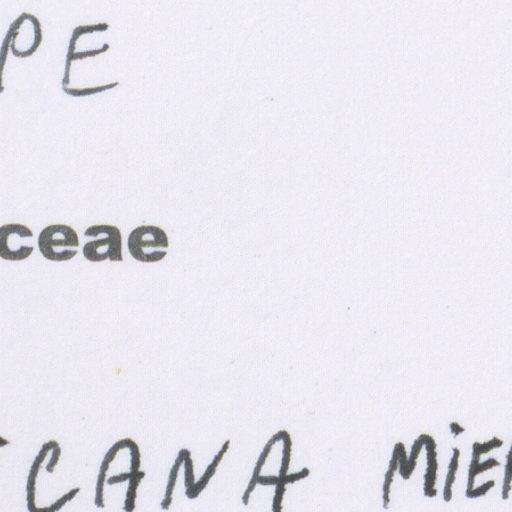 PE
ceae
CANA MiER